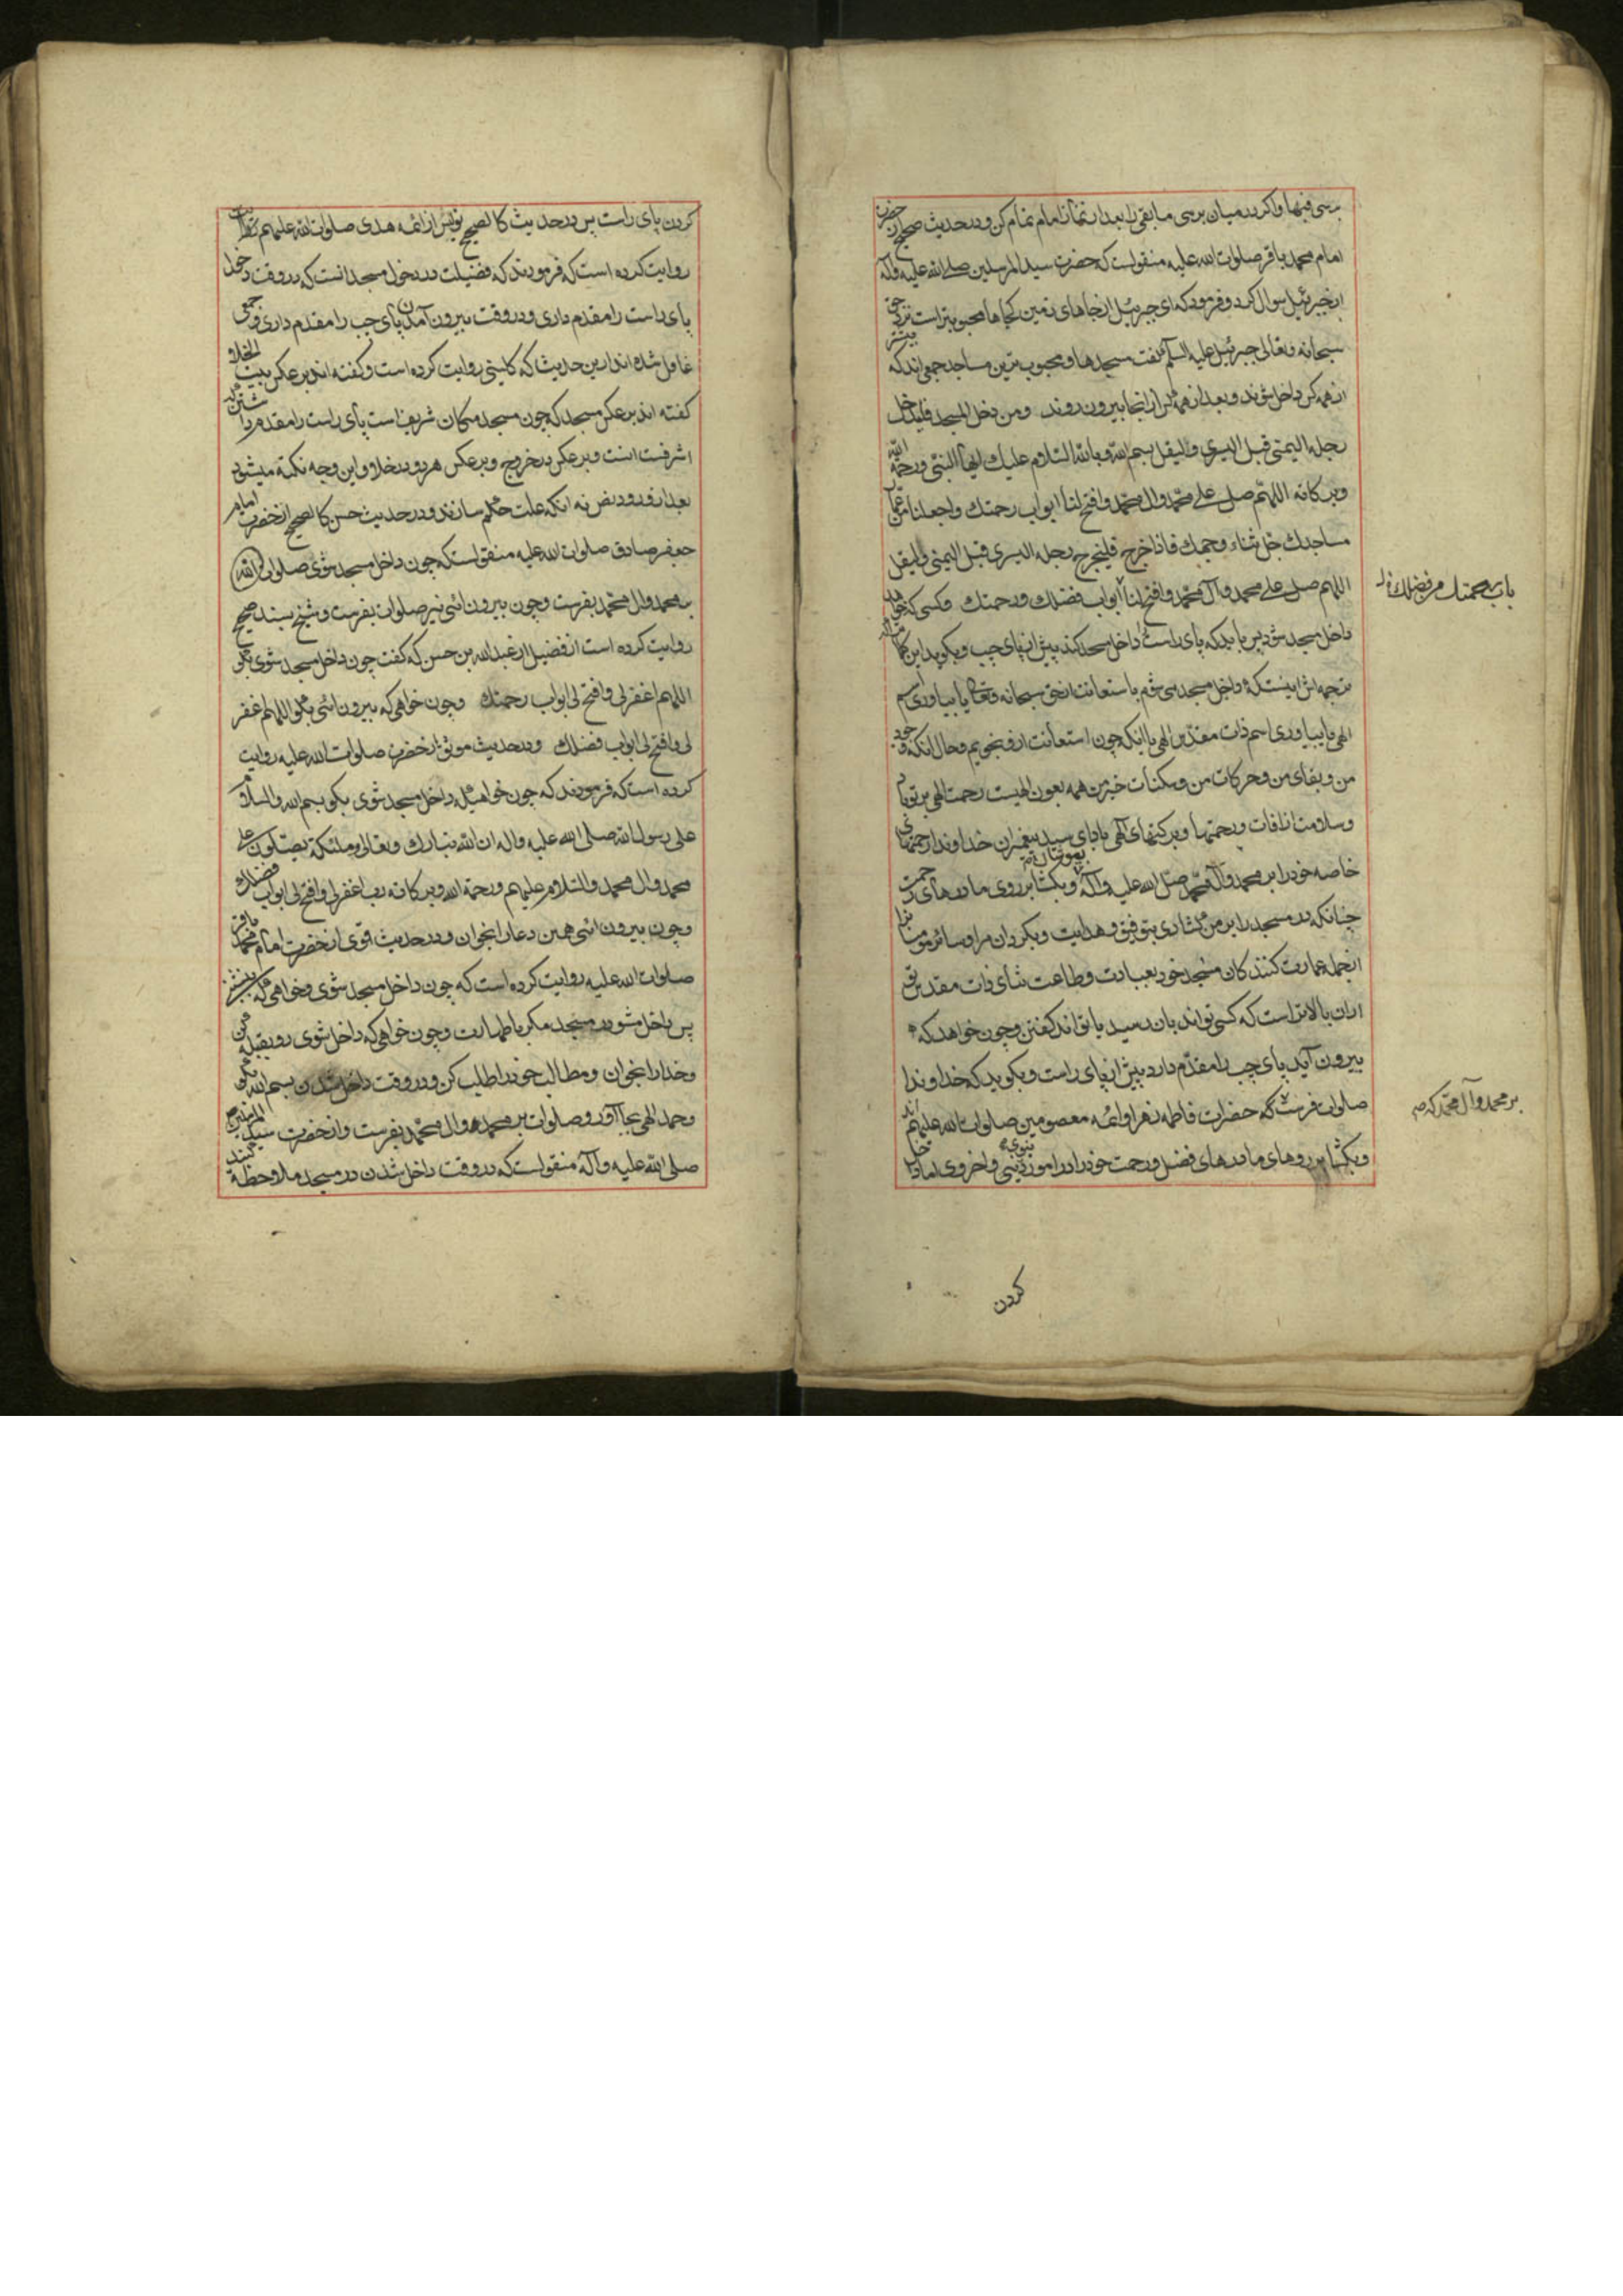 برسی فبها و اکر در میان برسی مابقی را بعد از نماز امام تمام کن و در حدیث صحیح از حضرت
امام محمد باقر صلوات الله علیه منقولست که حضرت سید المرسلین صلی الله علیه و آله
از جبرئیل سوال کرد و فرمود که ای جبرئیل از جاهای زمین کجاها محبوبتر است نزد حق
سبحانه و تعالی جبرئیل علیه السلم گفت مسجدها و محبوب ترین مساجد جمعی اند که پیشتر
از همه کس داخل شوند و بعد از همه کس از انجا بیرون روند ومن دخل المسجد فلیدخل
رجله الیمنی قبل الیسری و الیقل بسم الله و بالله السلام علیک ایها النبی و رحمة الله
وبرکاته اللهم صل علی محمد وال محمد وافتح لنا ابواب رحمتک واجعلنا من عمار
مساجدک جل ثناء وجهک فاذا خرج فلیخرج رجله الیسری قبل الیمنی و لیقل
اللهم صل علی محمد و آل محمد وافتح لنا ابواب فضلک ورحمتک وکسی که خواهد
باب رحمتک من فضلک
داخل مسجد شود پس باید که پای راست داخل مسجد کند پیش از پای چپ و بکوید این
ترجمه اش اینست که داخل مسجد می شوم باستعانت از حق سبحانه و تعالی یا بیاوری اسم
الهی یا بیاوری اسم ذات مقدس الهی با انکه چون استعانت ازو نجویم وحال انکه وجود
من و بقای من و حرکات من و سکنات خیر من همه بعون الهیست رحمت الهی بر تو باد
وسلامت از افات و رحمتها و برکتهای الهی با دای سید پیغمبران خداوندا رحمتهای
خاصه خود را بر محمد و آل محمد صلی الله علیه و آله و بکشا بر روی ما درهای رحمت
چنانکه در مسجد را بر من کشادی بتوفیق و هدایت و بکردان مرا و سائر مومنانرا
از جمله عمارت کنندکان مسجد خود بعبادت و طاعت ثنای ذات مقدس تو
ازان بالاتر است که کسی تواند بان رسید یا تواند کفتن و چون خواهد که
بیرون آید پای چپ را مقدم دارد پیش از پای راست و بکوید که خداوندا
صلوات فرست که حضرات فاطمه زهرا و ائمه معصومین صلوات الله علیهم اند
بر محمد و آل محمد که
و بکشا بر روهای ما درهای فضل و رحمت خود را در امور دینی و اخروی اما داخل
کردن
کردن پای راست پس در حدیث کالصحیح یونس از ائمه هدی صلوات الله علیهم
روایت کرده است که فرمودند که فضیلت در دخول مسجد انست که در وقت دخول
پای راست را مقدم داری و در وقت بیرون آمدن پای چپ را مقدم داری و جمعی
غافل شده اند ازین حدیث که کلینی روایت کرده است و کفته اند بر عکس بیت الخلا
کفته اند بر عکس مسجد که چون مسجد مکان شریف است پای راست را مقدم داشتن
اشرفست انست و بر عکس در خروج و بر عکس هر دو در خلا و این وجه نکتة میشود
بعد از ورود نص نه انکه علت حکم سازند و در حدیث حسن کالصحیح از حضرت امام
جعفر صادق صلوات الله علیه منقولست که چون داخل مسجد شوی صلوات الله
بر محمد وال محمد بفرست و چون بیرون ائی نیز صلوات بفرست و شیخ بسند صحیح
روایت کرده است از فضیل از عبد الله بن حسن که کفت چون داخل مسجد شوی بکو
اللهم اغفر لی وافتح لی ابواب رحمتک وچون خواهی که بیرون ائی بکو اللهم اغفر
لی وافتح لی ابواب فضلک و در حدیث موثق از حضرت صلوات الله علیه روایت
کرده است که فرمودند که چون خواهی که داخل مسجد شوی بکو بسم الله والسلام
علی رسول الله صلی الله علیه واله ان الله تبارک وتعالی وملئکته یصلون علی
محمد وال محمد والسلام علیهم ورحمة الله وبرکاته رب اغفر لی وافتح لی ابواب فضلک
وچون بیرون ائی همین دعا را بخوان و در حدیث قوی از حضرت امام محمد باقر
صلوات الله علیه روایت کرده است که چون داخل مسجد شوی و خواهی که بنشینی
پس داخل مشو در مسجد مکر با طهارت و چون خواهی که داخل شوی رو بقبله کن
وخدا را بخوان ومطالب خود را طلب کن و در وقت داخل شدن بسم الله بکو
وحمد الهی بجا آور و صلوات بر محمد وال محمد بفرست و از حضرت سید المرسلین
صلی الله علیه و آله منقولست که در وقت داخل شدن در مسجد ملاحظه کنید